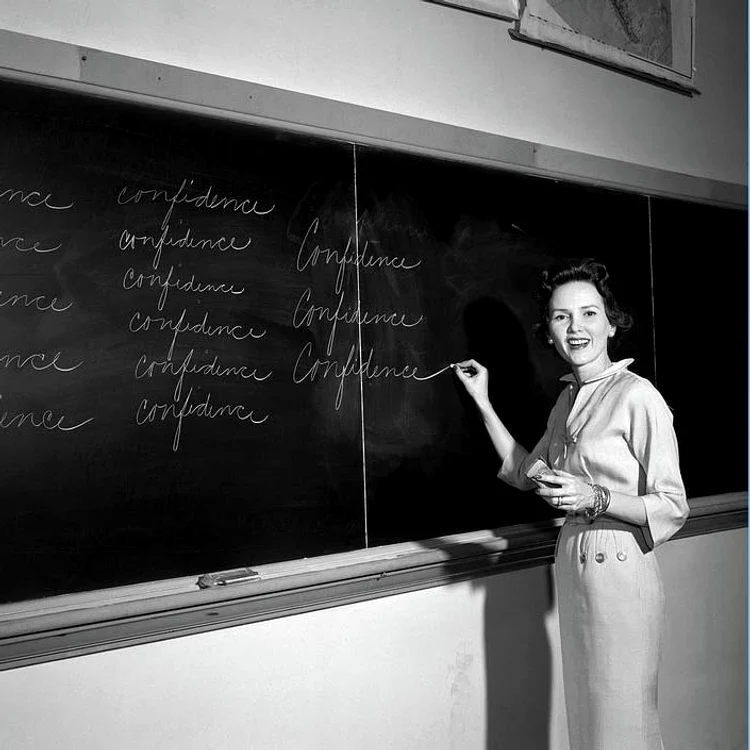 nce
nce
ence
nce
ence
confidence
confidence
confidence
confidence
confidence
confidence
Confidence
Confidence
Confidence